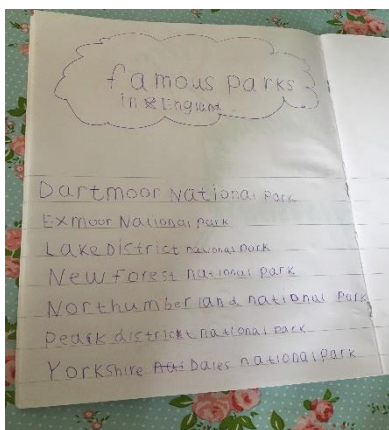 famous parks
in England
Dartmoor National Park
Exmoor National Park
Lake District national park
New forest national park
Northumberland national Park
Peark district national park
Yorkshire Dales national park